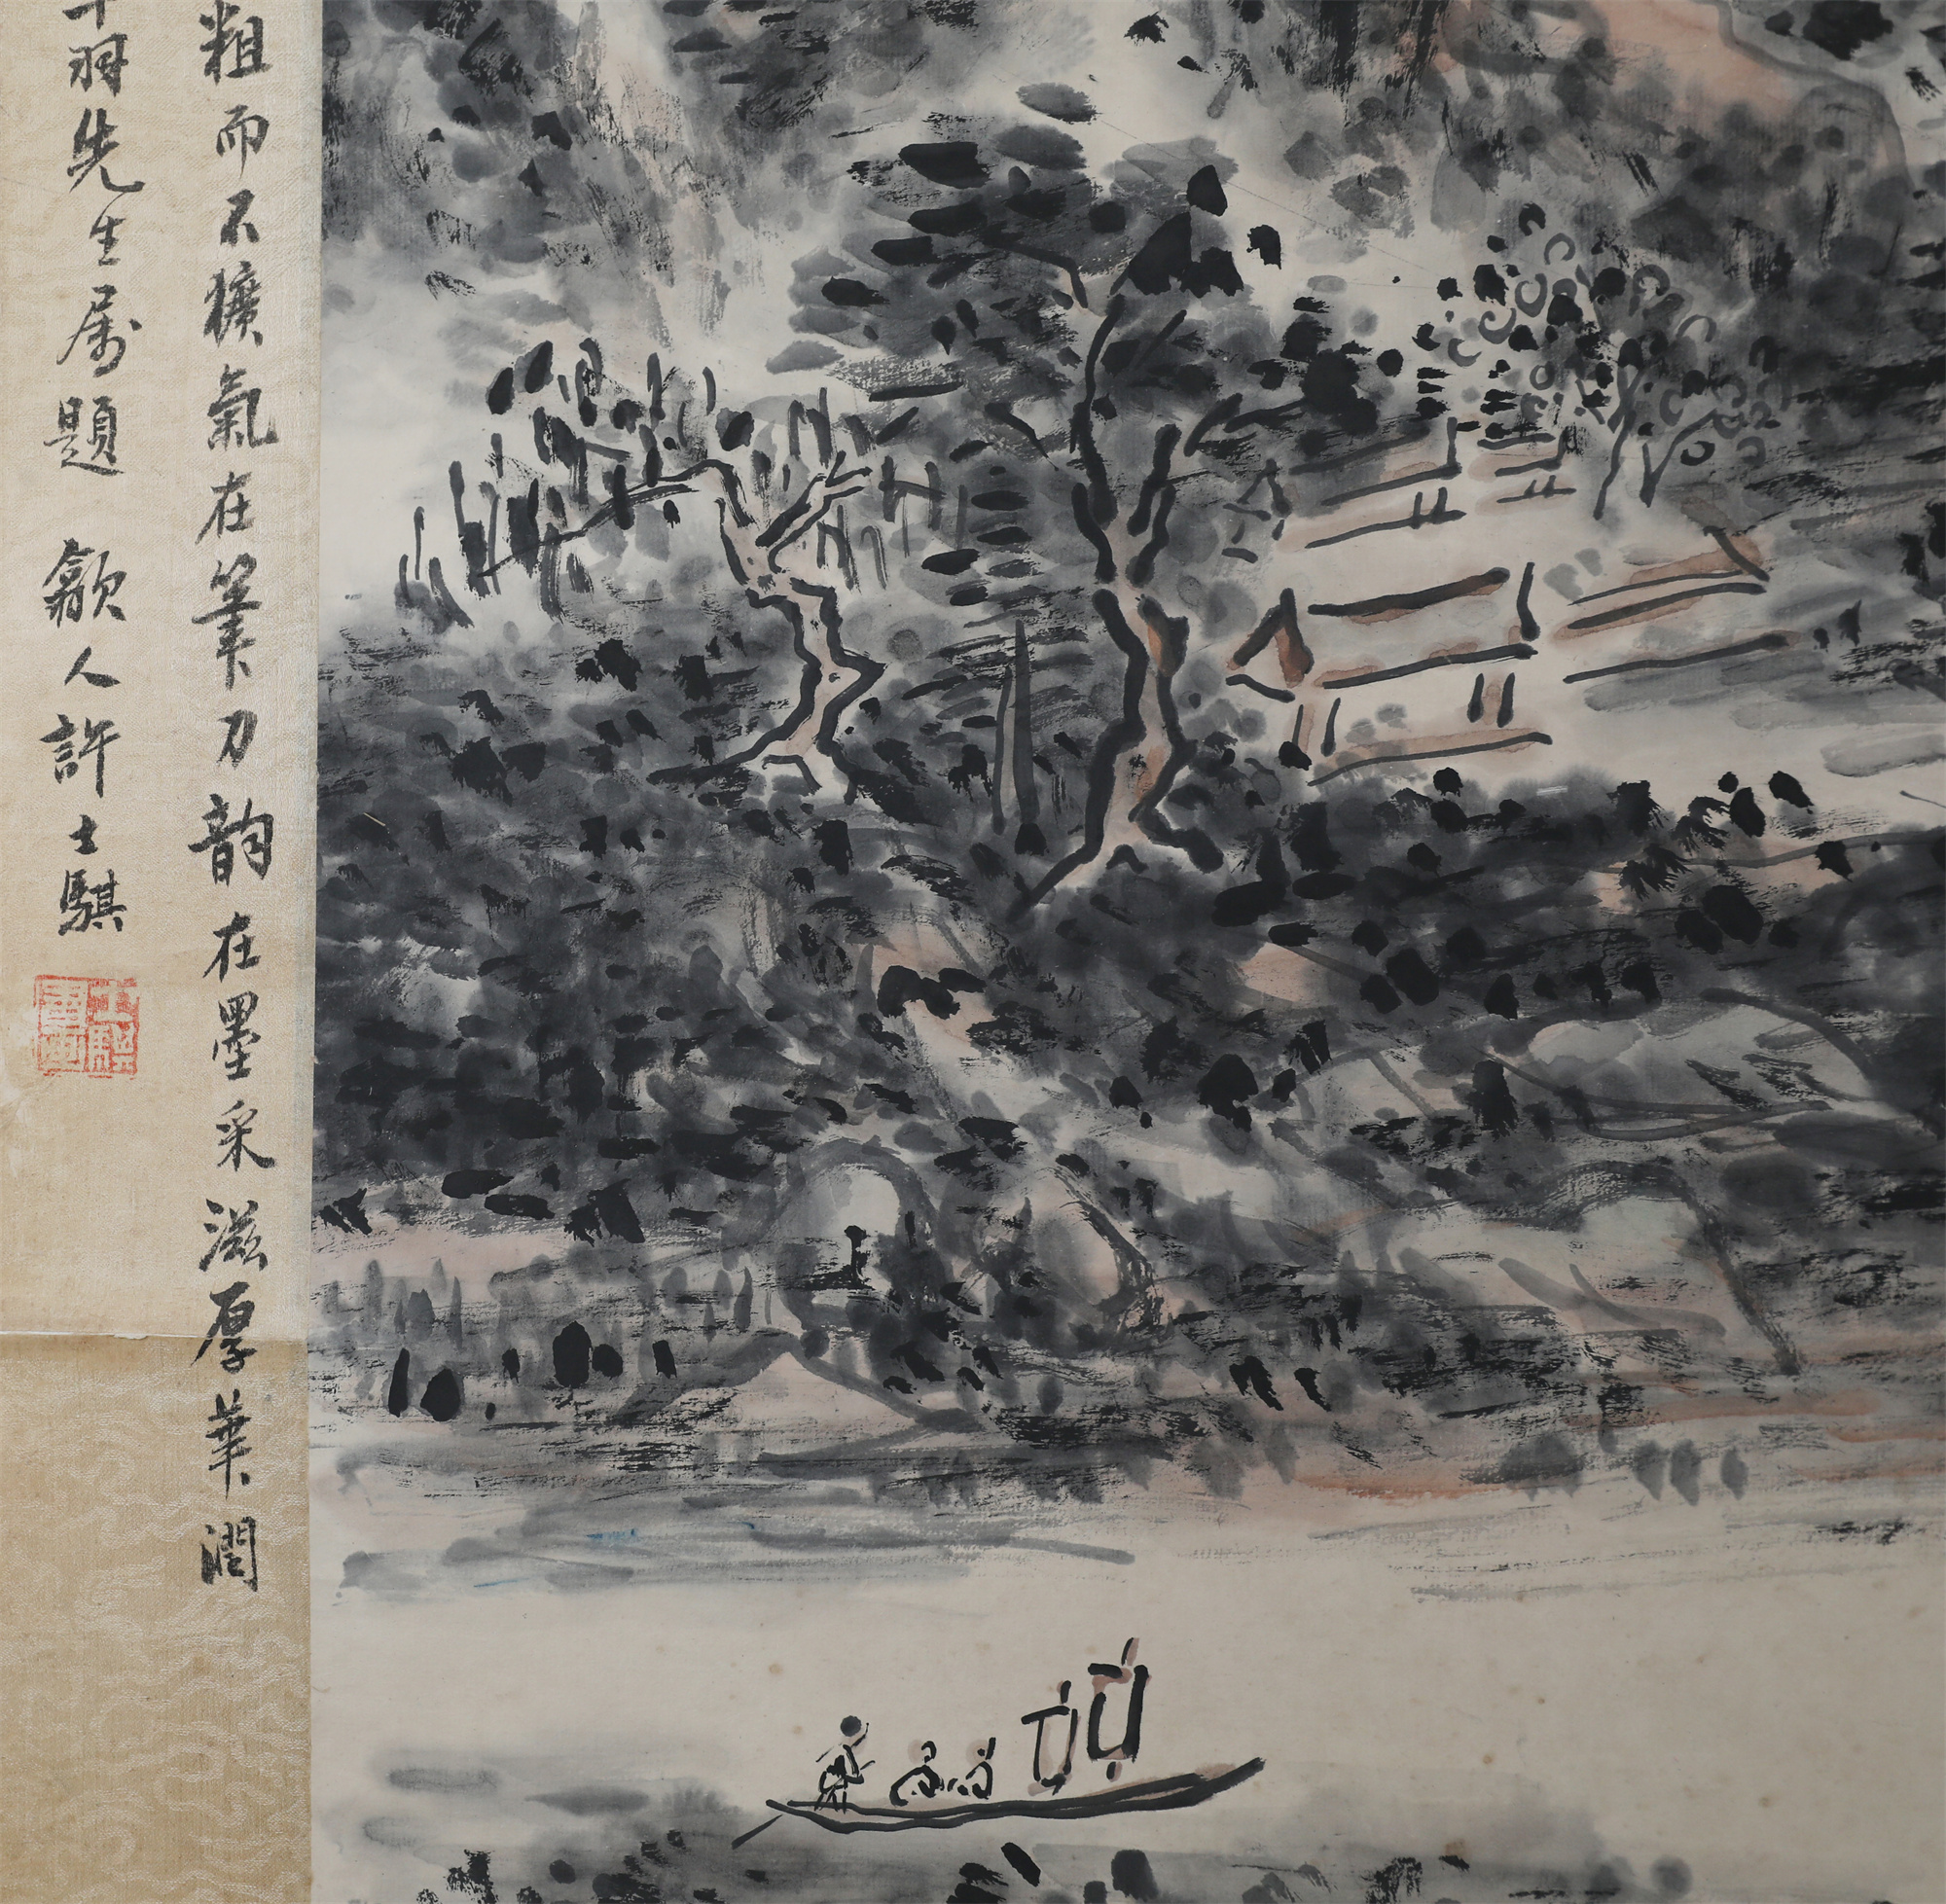 粗而不獷氣在筆力韵在墨采滋厚華潤
羽先生属題 歙人許士騏